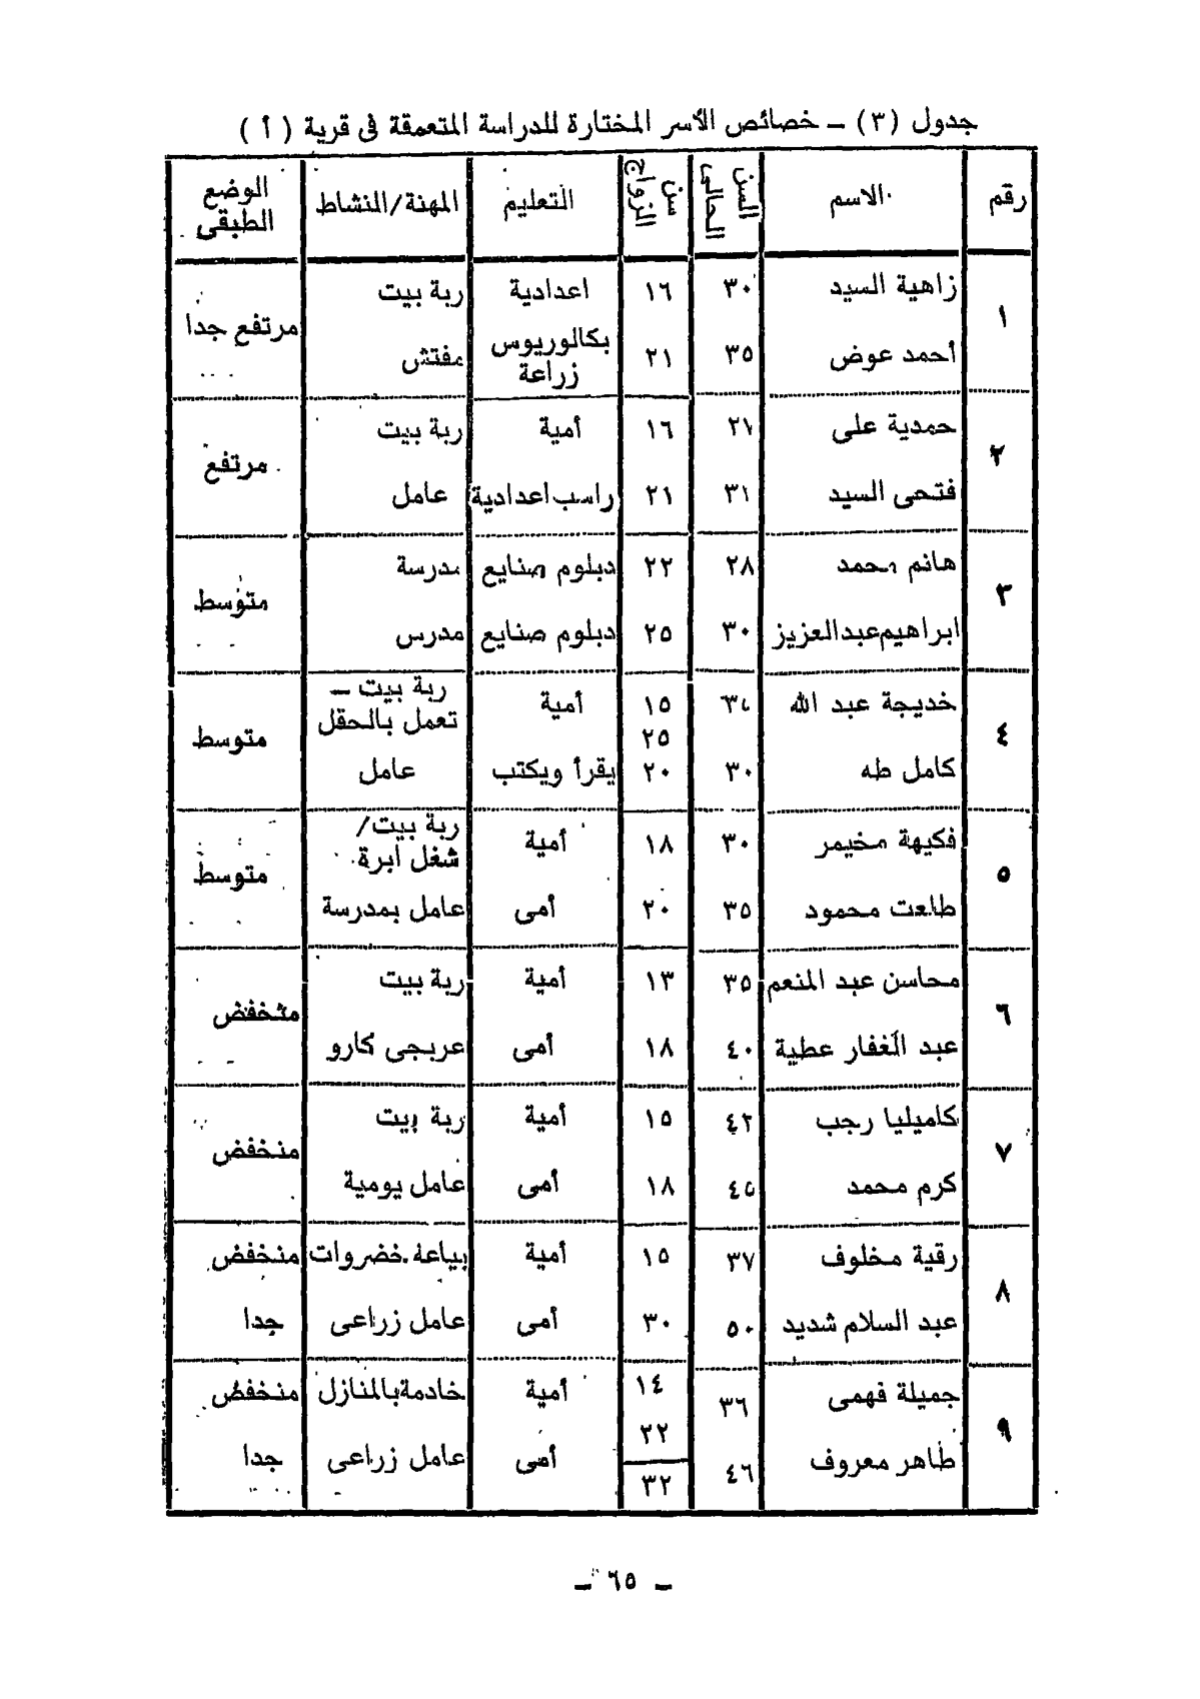 جدول (٣) ــ خصائص الأسر المختارة للدراسة المتعمقة فى قرية ( أ )
رقم الاسم السن الحالى سن الزواج التعليم المهنة/النشاط الوضع الطبقى
١ زاهية السيد ٣٠ ١٦ اعدادية ربة بيت مرتفع جدا
أحمد عوض ٣٥ ٢١ بكالوريوس زراعة مفتش
٢ حمدية على ١٦ أمية ربة بيت مرتفع
فتحى السيد ٣١ ٢١ راسب اعدادية عامل
٣ هانم محمد ٢٨ ٢٢ دبلوم صنايع مدرسة متوسط
ابراهيم عبد العزيز ٣٠ ٢٥ دبلوم صنايع مدرس
٤ خديجة عبد الله ١٥ أمية ربة بيت ــ متوسط
٢٥ تعمل بالحقل
كامل طه ٣٠ ٢٠ يقرأ ويكتب عامل
٥ فكيهة مخيمر ٣٠ ١٨ أمية ربة بيت/ متوسط
شغل ابرة
طلعت محمود ٣٥ ٢٠ أمى عامل بمدرسة
٦ محاسن عبد المنعم ٣٥ ١٣ أمية ربة بيت منخفض
عبد الغفار عطية ٤٠ ١٨ أمى عربجى كارو
٧ كاميليا رجب ٤٢ ١٥ أمية ربة بيت منخفض
كرم محمد ٤٥ ١٨ أمى عامل يومية
٨ رقية مخلوف ٣٧ ١٥ أمية بياعة خضروات منخفض
عبد السلام شديد ٥٠ ٣٠ أمى عامل زراعى جدا
٩ جميلة فهمى ٣٦ ١٤ أمية خادمة بالمنازل منخفض
٢٢
طاهر معروف ٤٦ ٣٢ أمى عامل زراعى جدا
ــ ٦٥ ــ